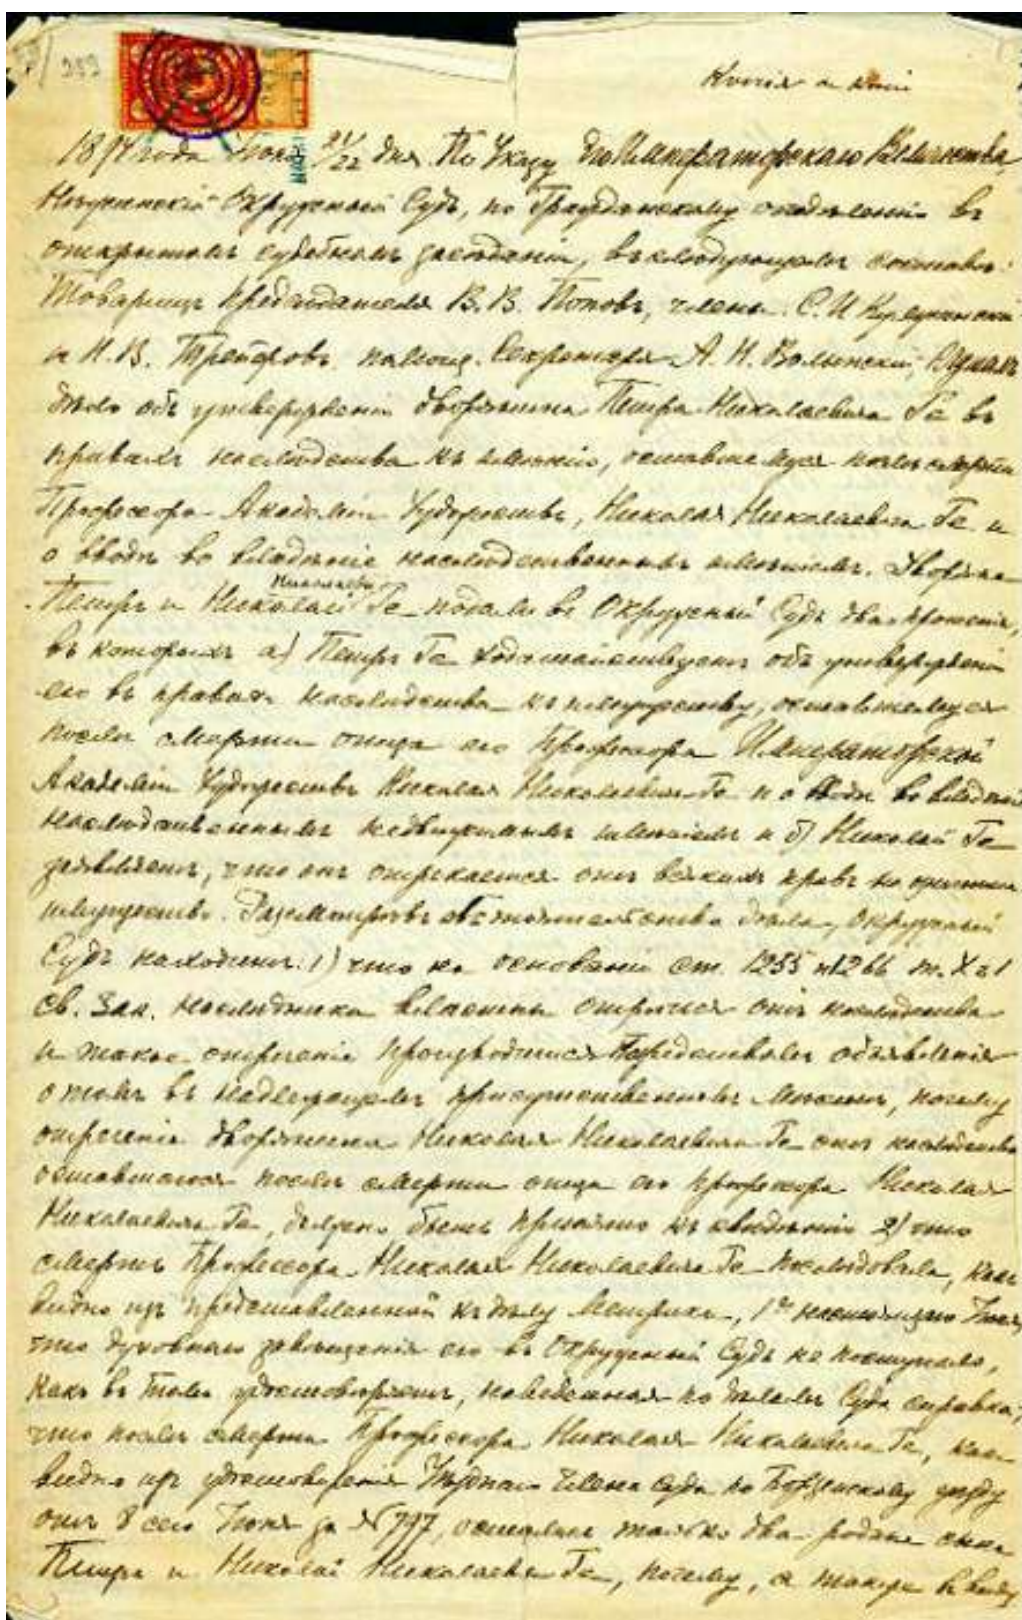 Копія съ копіи
1894 года Іюня 21/22 дня По Указу Его Императорскаго Величества,
Нѣжинскій Окружный Судъ, по Гражданскому отдѣленію въ
открытомъ судебномъ засѣданіи, въ слѣдующемъ составѣ:
Товарищъ Предсѣдателя В. В. Поповъ, члены: С. И.
и И. В. помощ. Секретаря А. Н. Волынскій, слушалъ
дѣло объ утвержденіи дворянина Петра Николаевича Ге въ
правахъ наслѣдства къ имѣнію, оставшемуся послѣ смерти
Профессора Академіи Художествъ, Николая Николаевича Ге и
о вводѣ во владѣніе наслѣдственнымъ имѣніемъ. Дворяне
Петръ и Николай Николаевичи Ге подали въ Окружный Судъ два прошенія,
въ которыхъ а) Петръ Ге ходатайствуетъ объ утвержденіи
его въ правахъ наслѣдства къ имуществу, оставшемуся
послѣ смерти отца его Профессора Императорской
Академіи Художествъ Николая Николаевича Ге и о вводѣ во владѣніе
наслѣдственнымъ недвижимымъ имѣніемъ и б) Николай Ге
заявляетъ, что онъ отрекается отъ всякихъ правъ на
имущество. Разсмотрѣвъ обстоятельства дѣла, Окружный
Судъ находитъ: 1) что на основаніи ст. 1255 и 1266 т. X ч 1
Св. Зак. наслѣдники властны отречься отъ наслѣдства
и такое отреченіе производится посредствомъ объявленія
о томъ въ надлежащемъ присутственномъ мѣстѣ, почему
отреченіе дворянина Николая Николаевича Ге отъ наслѣдства
оставшагося послѣ смерти отца его профессора Николая
Николаевича Ге, должно быть принято къ свѣдѣнію 2) что
смерть Профессора Николая Николаевича Ге послѣдовала, какъ
видно изъ представленной къ дѣлу Метрики, 1го Іюня,
что духовнаго завѣщанія его въ Окружный Судъ не поступало,
какъ въ томъ удостовѣряетъ, наведенная по дѣламъ Суда справка,
что послѣ смерти Профессора Николая Николаевича Ге, какъ
видно изъ удостовѣренія Уѣзднаго Члена Суда по Борзенскому уѣзду
отъ 8 сего Іюня за № 797, остались только два родные сына
Петръ и Николай Николаевичи Ге, почему, а также въ виду